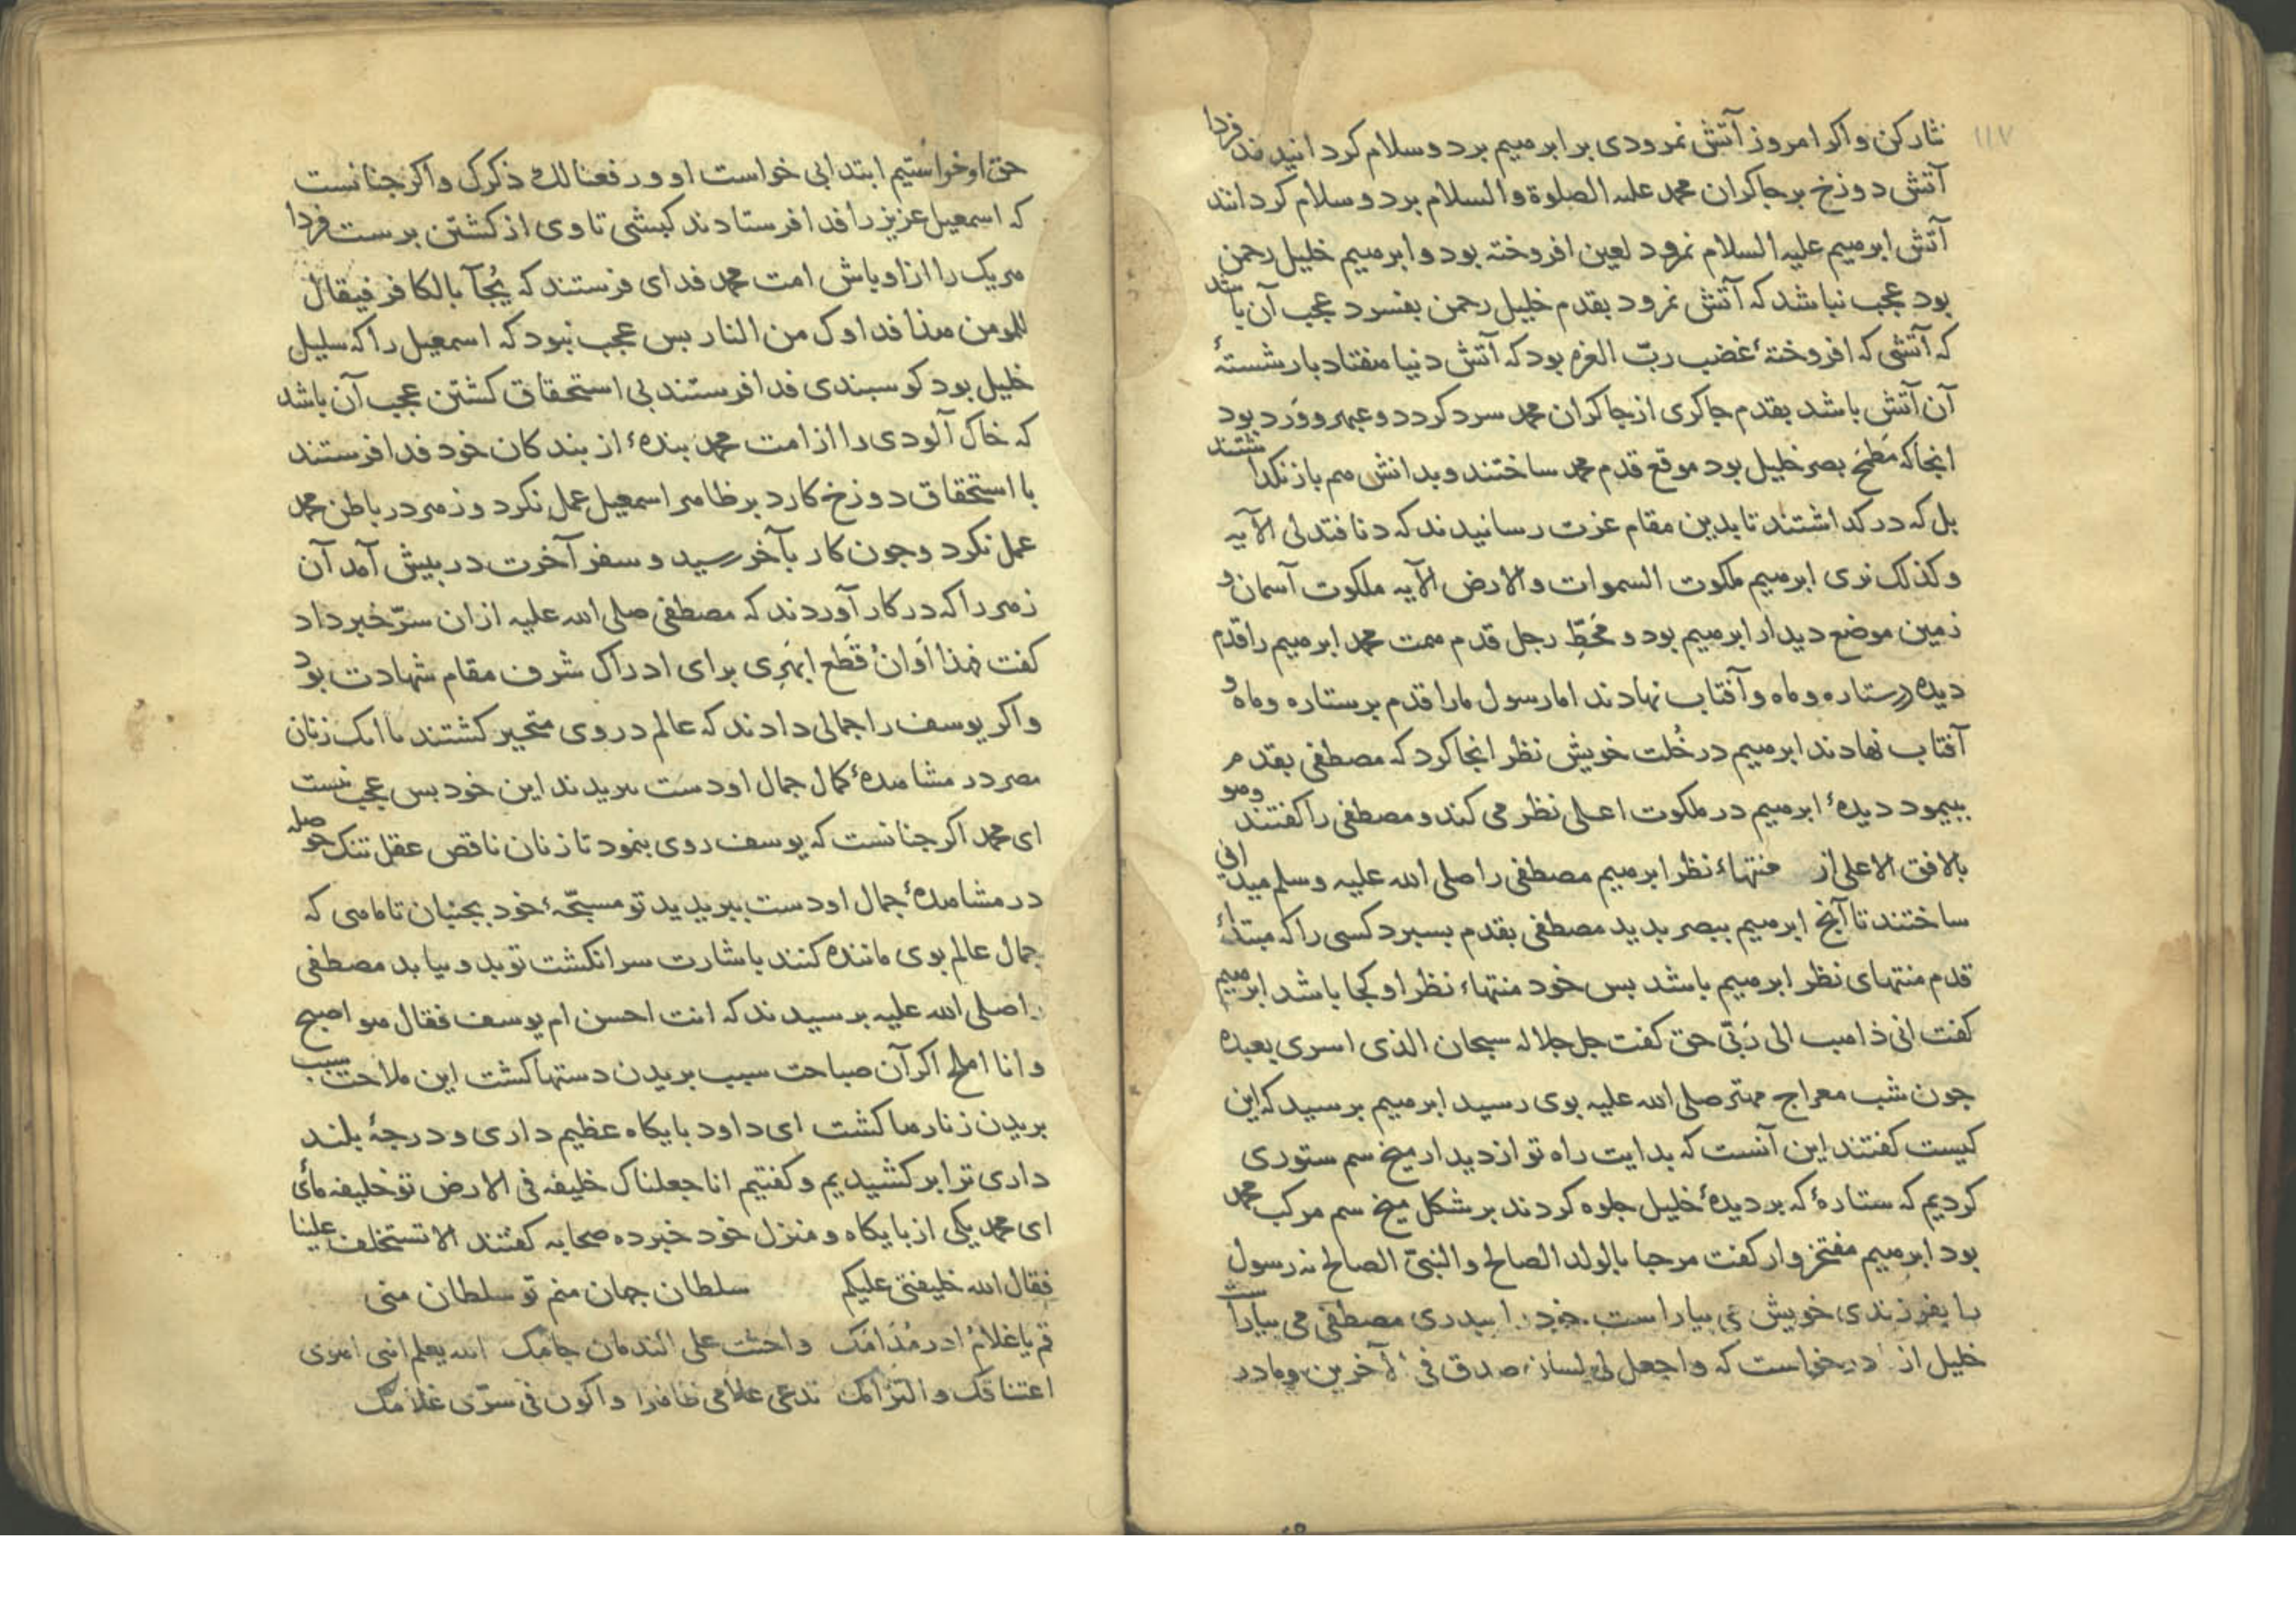 ۱۱۷
نثار کن و اکر امروز آتش نمرودی بر ابرهیم برد و سلام کردانیدند فردا
آتش دوزخ بر جاکران محمد علیه الصلوة والسلام برد و سلام کردانند
آتش ابرهیم علیه السلام نمرود لعین افروخته بود و ابرهیم خلیل رحمن
بود عجب نباشد که آتش نمرود بقدم خلیل رحمن بفسرد عجب آن باشد
که آتشی که افروختهٔ غضب ربّ العزه بود که آتش دنیا هفتاد بار شستهٔ
آن آتش باشد بقدم جاکری از جاکران محمد سرد کردد و عبهر و ورد بود
انجا که مَطمَح بصر خلیل بود موقع قدم محمد ساختند و بدانش هم باز نکداشتند
بل که در کداشتند تا بدین مقام عزت رسانیدند که دنا فتدلی الآیه
و کذلک نری ابرهیم ملکوت السموات والارض الآیه ملکوت آسمان و
زمین موضع دیدار ابرهیم بود و مَحَطِّ رجل قدم همت محمد ابرهیم را قدم
دیده در ستاره و ماه و آفتاب نهادند اما رسول ما را قدم بر ستاره و ماه و
آفتاب نهادند ابرهیم در خُلت خویش نظر انجا کرد که مصطفی بقدم
بیمود دیدهٔ ابرهیم در ملکوت اعلی نظر می کند و مصطفی را کفتند وهو
بالافق الاعلی از منتهاء نظر ابرهیم مصطفی را صلی الله علیه وسلم میدانی
ساختند تا آنج ابرهیم ببصر بدید مصطفی بقدم بسبرد کسی را که مبتداء
قدم منتهای نظر ابرهیم باشد بس خود منتهاء نظر او کجا باشد ابرهیم
کفت انی ذاهب الی رَبّی حق کفت جل جلاله سبحان الذی اسری بعبده
جون شب معراج مهتر صلی الله علیه بوی رسید ابرهیم برسید که این
کیست کفتند این آنست که بدایت راه تو از دیدار میخ سم ستوری
کردیم که ستارهٔ که بر دیدهٔ خلیل جلوه کردند بر شکل میخ سم مرکب محمد
بود ابرهیم مفتخروار کفت مرحبا بالولد الصالح والنبیّ الصالح نه رسول
را بفرزندی خویش می بیاراست خود را ببدری مصطفی می بیاراست
خلیل از درخواست که واجعل لی لسان صدق فی الآخرین و ما در
حق او خواستیم ابتدا بی خواست او ورفعنا لک ذکرک و اکر جنانست
که اسمعیل عزیز را فدا فرستادند کبشی تا وی از کشتن برست فردا
هریک را از اوباش امت محمد فدای فرستند که یُجآ بالکافر فیقال
للمومن هذا فداوک من النار بس عجب نبود که اسمعیل را که سلیل
خلیل بود کوسبندی فدا فرستند بی استحقاق کشتن عجب آن باشد
که خاک آلودی را از امت محمد بندهٔ از بندکان خود فدا فرستند
با استحقاق دوزخ کارد بر ظاهر اسمعیل عمل نکرد و زهر در باطن محمد
عمل نکرد و جون کار بآخر رسید و سفر آخرت در بیش آمد آن
زهر را که در کار آوردند که مصطفی صلی الله علیه از ان سرّ خبر داد
کفت فهذا اَوَانُ قَطع ابهَرِی برای ادراک شرف مقام شهادت بود
و اکر یوسف را جمالی دادند که عالم در وی متحیر کشتند تا انک زنان
مصر در مشاهدهٔ کمال جمال او دست ببریدند این خود بس عجب نیست
ای محمد اکر جنانست که یوسف روی بنمود تا زنان ناقص عقل تنک حوصله
در مشاهدهٔ جمال او دست ببریدید تو مسبّحهٔ خود بجنبان تا ماهی که
جمال عالم بوی ماننده کنند باشارت سر انکشت تو بدو نیاید مصطفی
را صلی الله علیه برسیدند که انت احسن ام یوسف فقال هو اصبح
و انا املح اکر آن صباحت سبب بریدن دستها کشت این ملاحت سبب
بریدن زنارها کشت ای داود بایکاه عظیم داری و درجهٔ بلند
داری ترا بر کشیدیم و کفتیم انا جعلناک خلیفه فی الارض تو خلیفه مائی
ای محمد یکی از بایکاه و منزل خود خبر ده صحابه کفتند الا تستخلف علینا
فقال الله خلیفتی علیکم سلطان جهان منم تو سلطان منی
قم یا غلامُ ادر مُدَامَک واحثث علی الندمان جامَک الله یعلم اننی اهوی
اعتناقک والتزامک تدعی غلامی ظاهرا و اکون فی سرّی غلامک